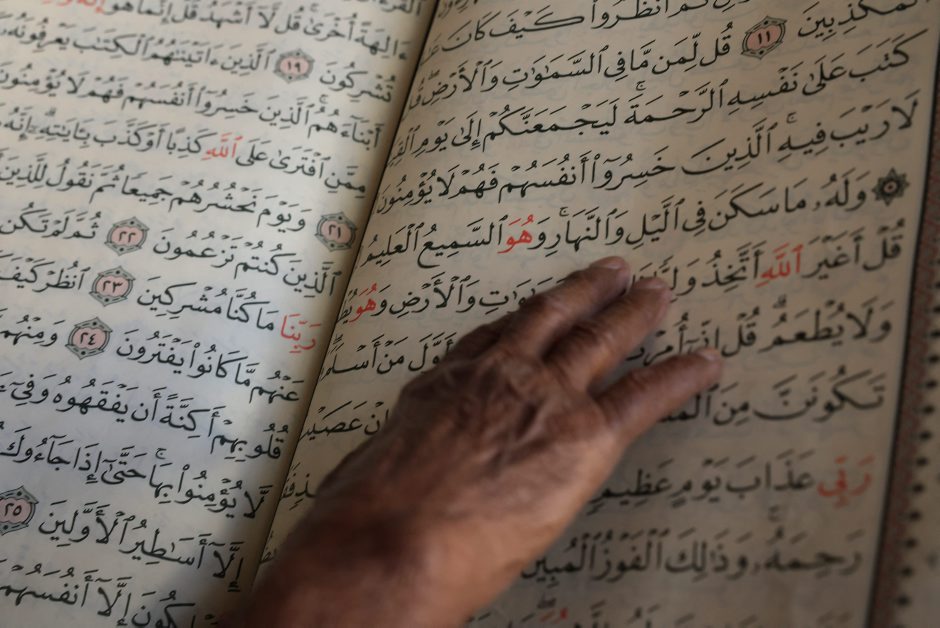 ٱنظُرُوا۟ كَيْفَ كَانَ
ٱلْمُكَذِّبِينَ ١١ قُل لِّمَن مَّا فِى ٱلسَّمَٰوَٰتِ وَٱلْأَرْضِ
كَتَبَ عَلَىٰ نَفْسِهِ ٱلرَّحْمَةَ ۚ لَيَجْمَعَنَّكُمْ إِلَىٰ يَوْمِ
لَا رَيْبَ فِيهِ ۚ ٱلَّذِينَ خَسِرُوٓا۟ أَنفُسَهُمْ فَهُمْ لَا يُؤْمِنُونَ
۞ وَلَهُۥ مَا سَكَنَ فِى ٱلَّيْلِ وَٱلنَّهَارِ ۚ وَهُوَ ٱلسَّمِيعُ ٱلْعَلِيمُ
قُلْ أَغَيْرَ ٱللَّهِ أَتَّخِذُ وَٱلْأَرْضِ وَهُوَ
وَلَا يُطْعَمُ ۗ قُلْ إِنِّىٓ أُمِرْتُ أَوَّلَ مَنْ أَسْلَمَ
تَكُونَنَّ مِنَ عَصَيْتُ
رَبِّى عَذَابَ يَوْمٍ عَظِيمٍ
رَحِمَهُۥ ۚ وَذَٰلِكَ ٱلْفَوْزُ ٱلْمُبِينُ
ءَالِهَةً أُخْرَىٰ ۚ قُل لَّآ أَشْهَدُ ۚ قُلْ إِنَّمَا هُوَ
تُشْرِكُونَ ١٩ ٱلَّذِينَ ءَاتَيْنَٰهُمُ ٱلْكِتَٰبَ يَعْرِفُونَهُۥ
أَبْنَآءَهُمُ ۘ ٱلَّذِينَ خَسِرُوٓا۟ أَنفُسَهُمْ فَهُمْ لَا يُؤْمِنُونَ
مِمَّنِ ٱفْتَرَىٰ عَلَى ٱللَّهِ كَذِبًا أَوْ كَذَّبَ بِـَٔايَٰتِهِۦٓ ۗ إِنَّهُۥ
٢١ وَيَوْمَ نَحْشُرُهُمْ جَمِيعًا ثُمَّ نَقُولُ لِلَّذِينَ
ٱلَّذِينَ كُنتُمْ تَزْعُمُونَ ٢٢ ثُمَّ لَمْ تَكُن
رَبِّنَا مَا كُنَّا مُشْرِكِينَ ٢٣ ٱنظُرْ كَيْفَ
عَنْهُم مَّا كَانُوا۟ يَفْتَرُونَ ٢٤ وَمِنْهُم
قُلُوبِهِمْ أَكِنَّةً أَن يَفْقَهُوهُ وَفِىٓ
لَّا يُؤْمِنُوا۟ بِهَا ۚ حَتَّىٰٓ إِذَا جَآءُوكَ
إِلَّآ أَسَٰطِيرُ ٱلْأَوَّلِينَ ٢٥
إِلَّآ أَنفُسَهُمْ